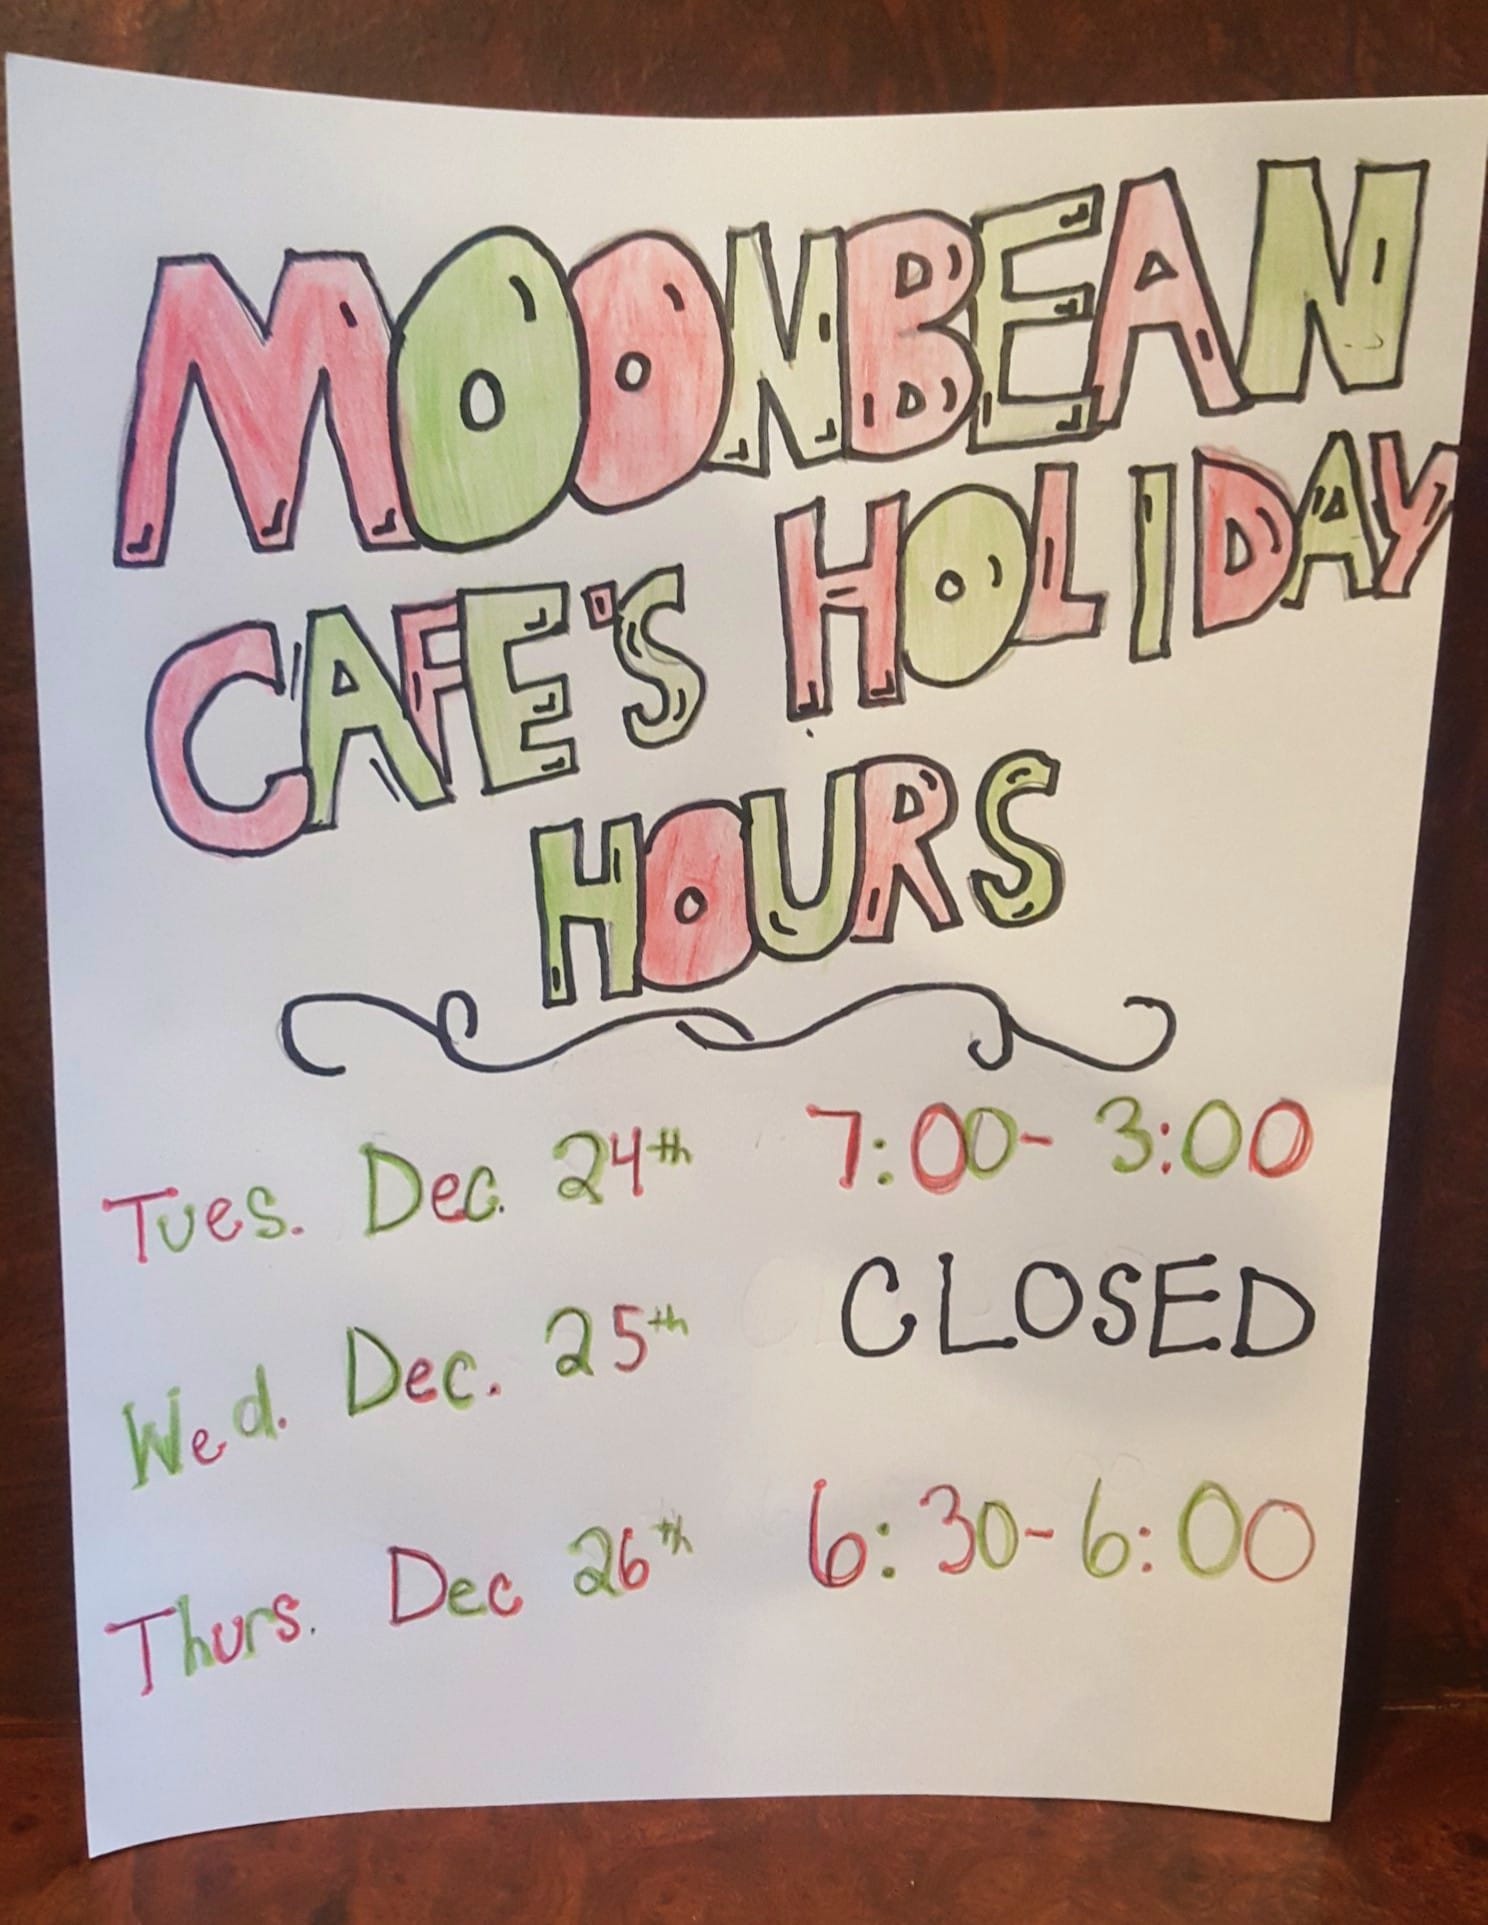 MOONBEAN
CAFE'S HOLIDAY
HOURS
Tues. Dec. 24th 7:00- 3:00
Wed. Dec. 25th CLOSED
Thurs. Dec 26th 6:30-6:00